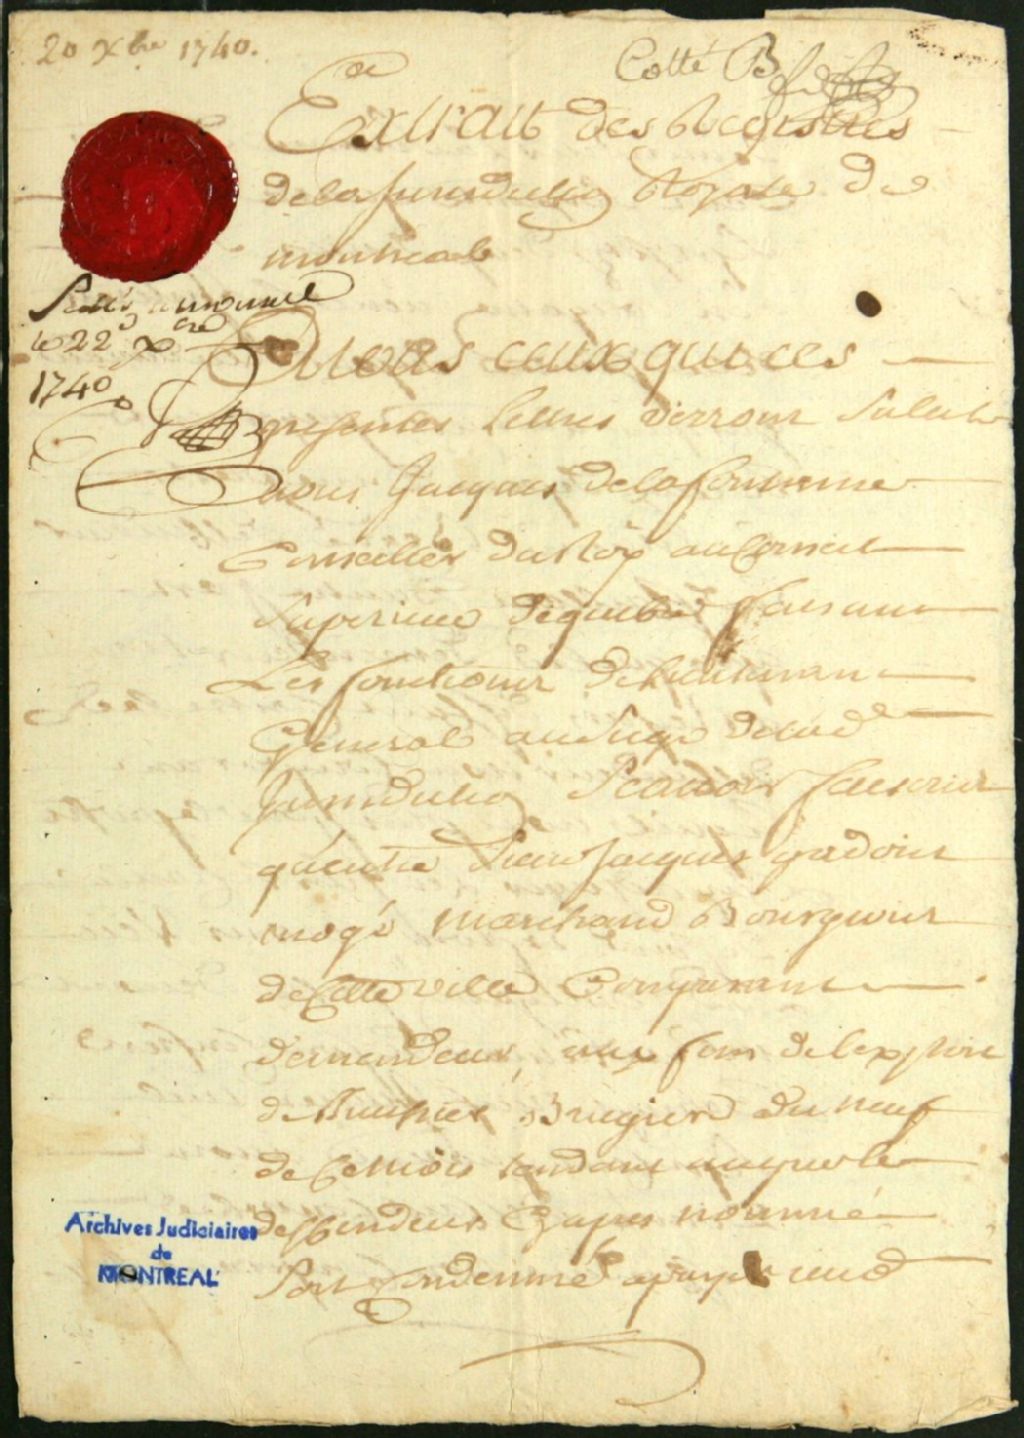 20 Xbre 1740.
Cotté B
Extrait des Registres
de la Jurisdiction Royale de
montreal
Scellé a montreal
le 22 xbre
1740
A tous ceux qui ces
presentes lettres verront Salut
Jacques de lafontaine
Conseiller du Roy au Conseil
Superieur de quebec faisant
Les fonctions de lieutenant
General au Siege de lad
Jurisdiction Scavoir faisons
quentre Sieur Jacques gadois
mogé marchand Bourgeois
de Cette ville Comparant
demandeur aux fins de lexploit
de Brugier du neuf
de Ce mois tendant aceque le
deffendeur Cy apres nommé
Soit Condemné a payer aud
Archives Judiciaires
de
MONTREAL